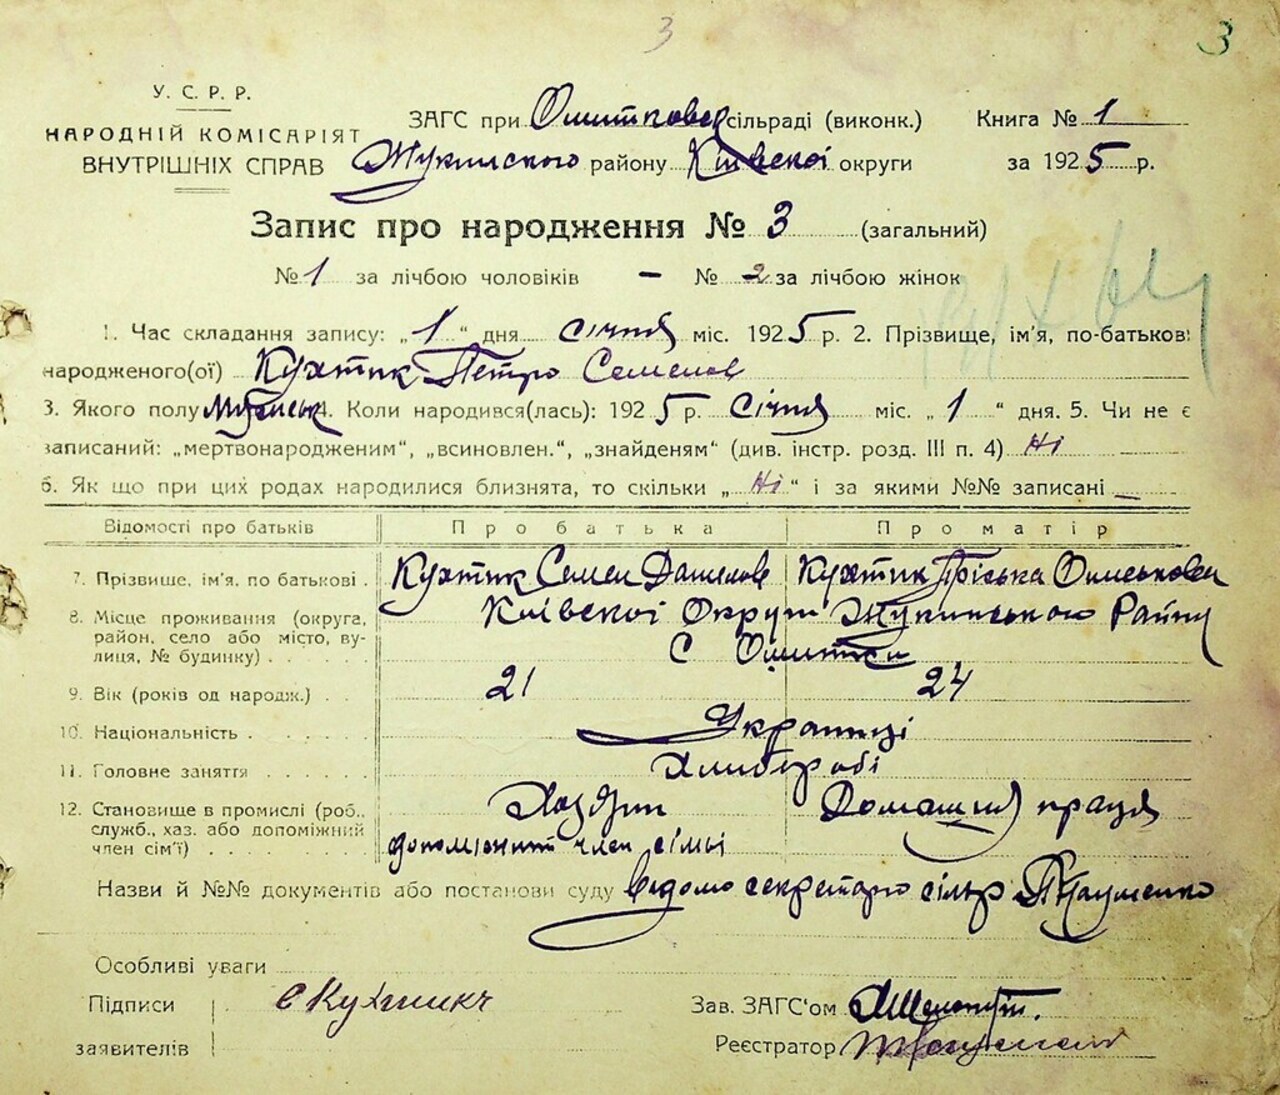 3
3
У. С. Р. Р.
НАРОДНІЙ КОМІСАРІЯТ
ВНУТРІШНІХ СПРАВ
ЗАГС при сільраді (виконк.)
району Київскої округи
Книга № 1
за 1925 р.
Запис про народження № 3 (загальний)
№ 1 за лічбою чоловіків – № 2 за лічбою жінок
1. Час складання запису: „1“ дня січня міс. 1925 р. 2. Прізвище, ім'я, по-батькові
народженого(ої) Кухтик Петро Семенов
3. Якого полу 4. Коли народився(лась): 1925 р. січня міс. „1“ дня. 5. Чи не є
записаний: „мертвонародженим“, „всиновлен.“, „знайденям“ (див. інстр. розд. III п. 4) Ні
6. Як що при цих родах народилися близнята, то скільки „Ні“ і за якими №№ записані –
Відомості про батьків Про батька Про матір
7. Прізвище, ім'я, по батькові Кухтик Семен Данилов Кухтик Пріська
8. Місце проживання (округа, район, село або місто, вулиця, № будинку) Київскої Округи Району
С
9. Вік (років од народж.) 21 24
10. Національність Українці
11. Головне заняття Хлибороби
12. Становище в промислі (роб., служб., хаз. або допоміжний член сім'ї) Хазяїн Домашня праця
член сімьі
Назви й №№ документів або постанови суду ведомо секретарю сільр
Особливі уваги
Підписи
заявителів
С Кухтик
Зав. ЗАГС'ом
Реєстратор